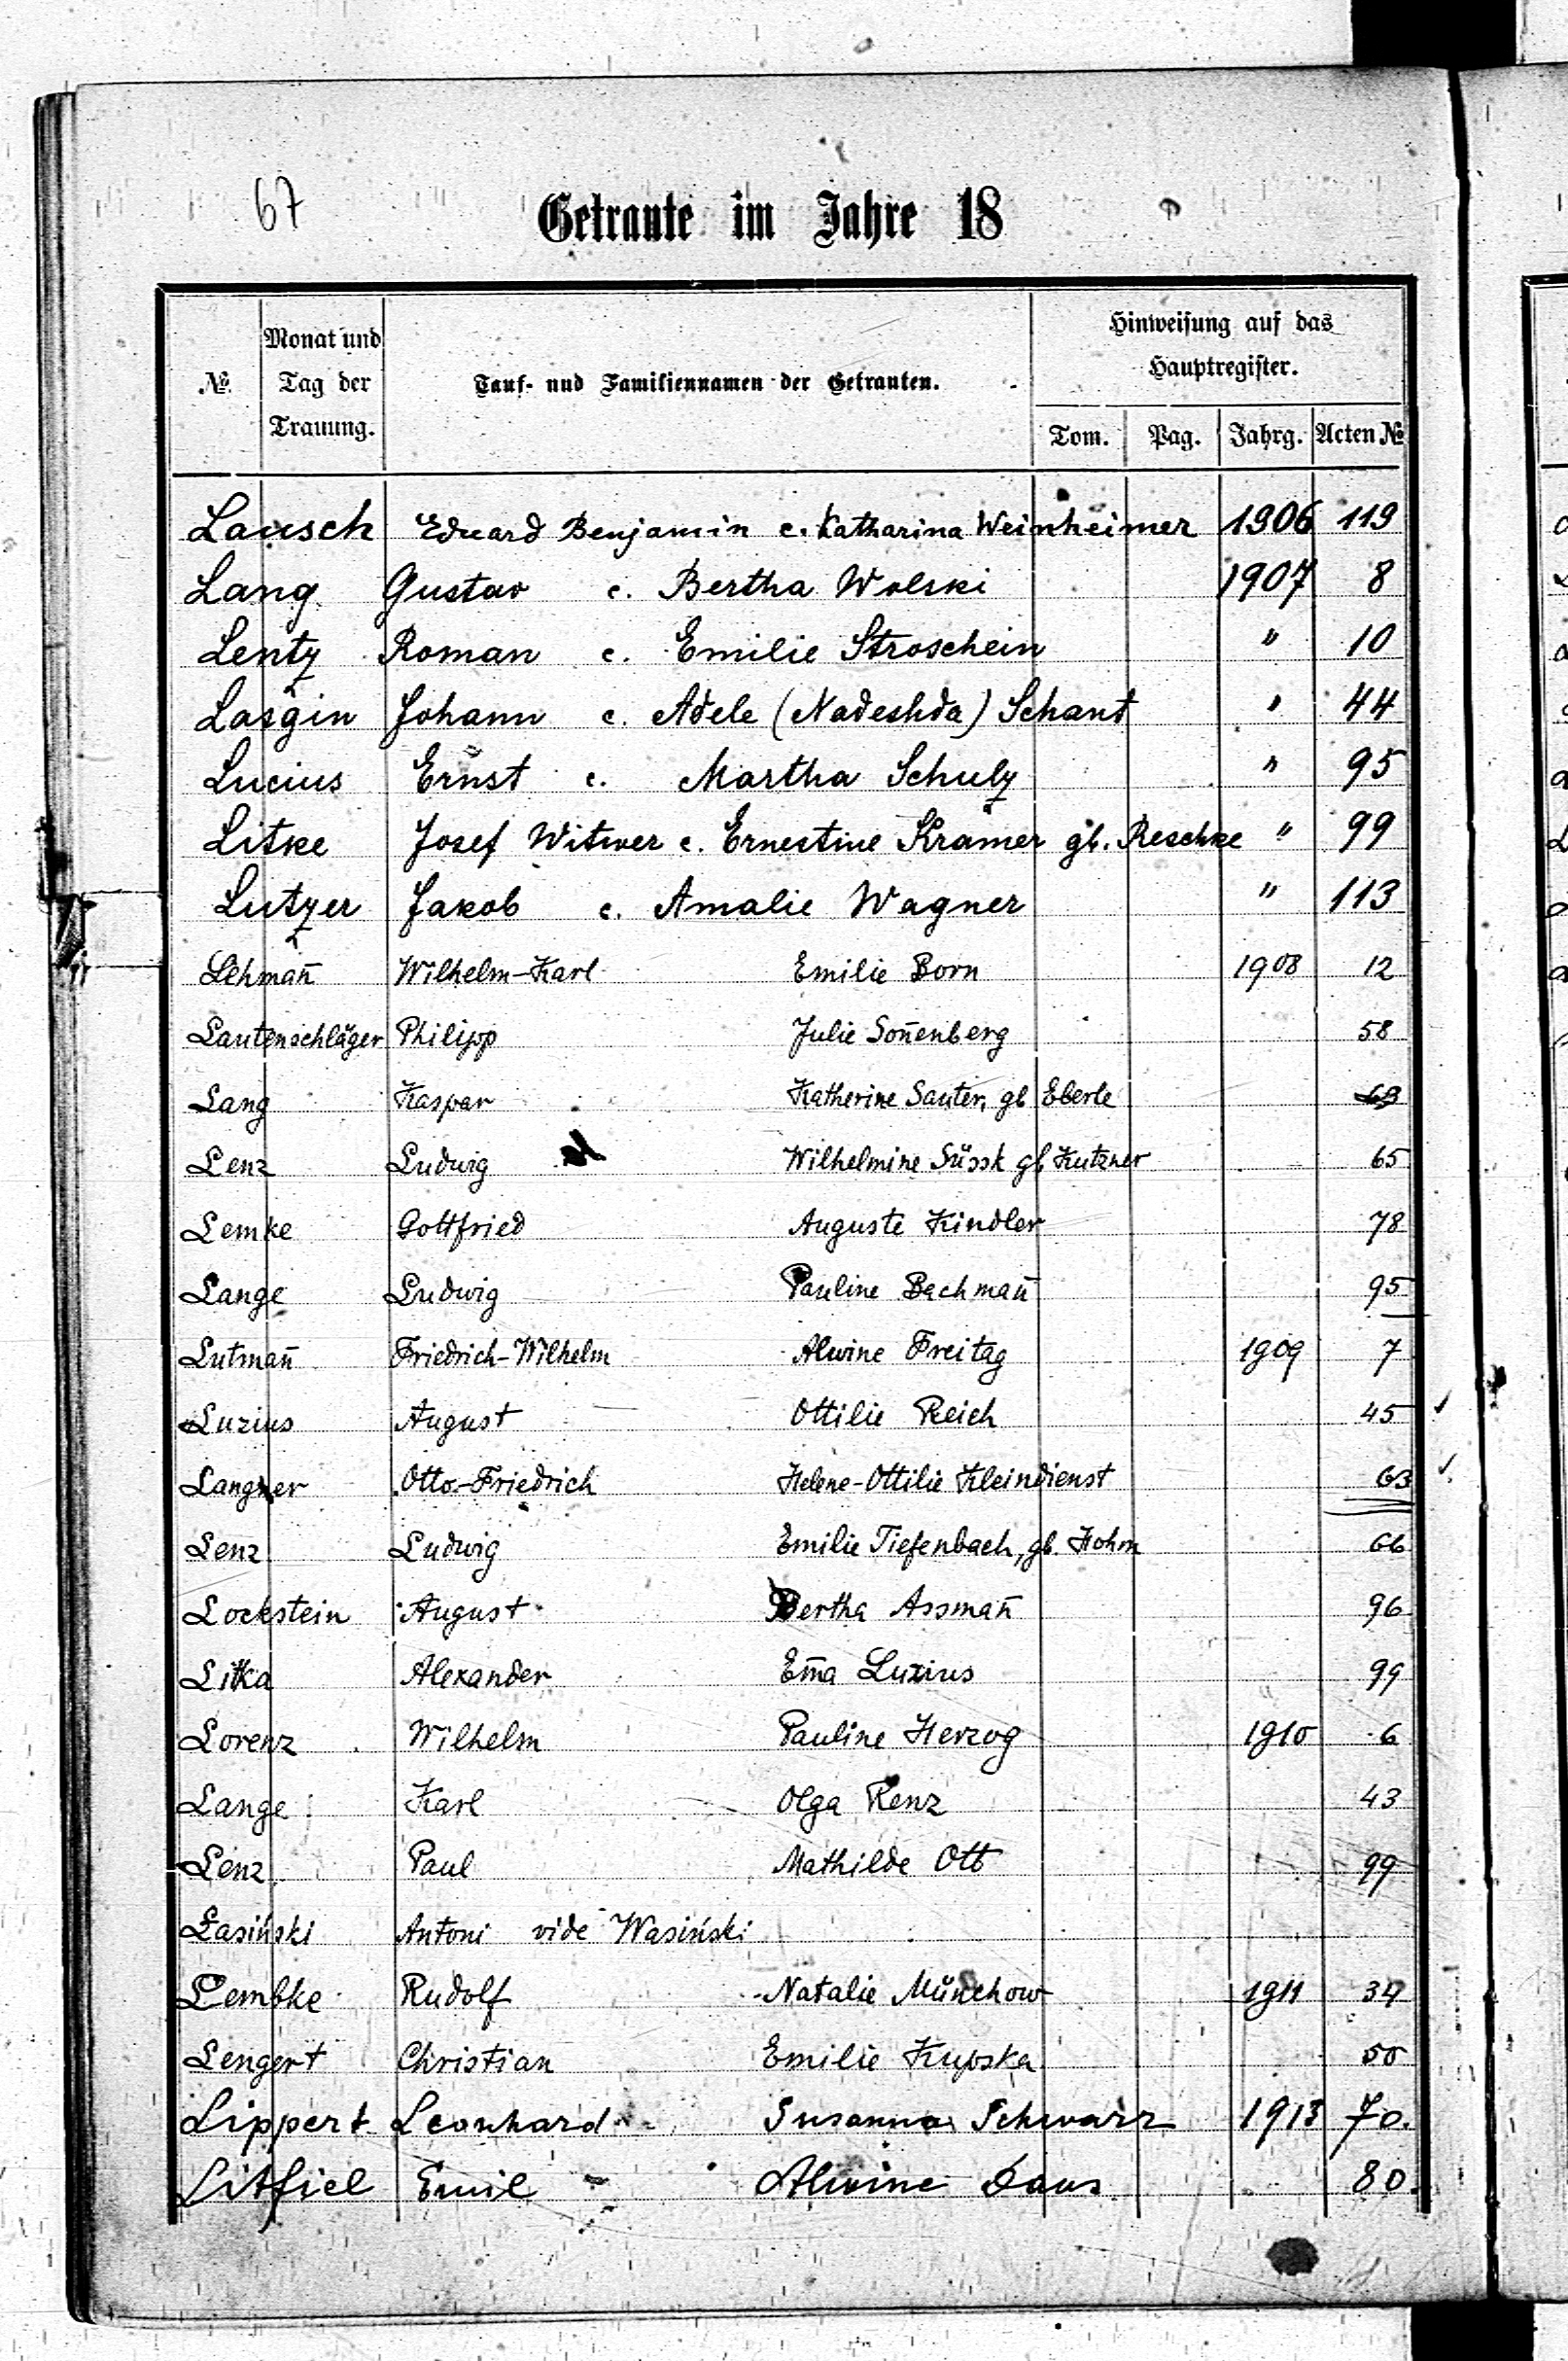 67
Getraute im Jahre 18
№ Monat und Tag der Trauung. Tauf- und Familiennamen der Getrauten. Hinweisung auf das Hauptregister.
Tom. Pag. Jahrg. Acten №
Lausch Eduard Benjamin c. Katharina Weinheimer 1906 119
Lang Gustav c. Bertha Wolski 1907 8
Lentz Roman c. Emilie Stroschein " 10
Lasgin Johann c. Adele (Nadeshda) Schant " 44
Lucius Ernst c. Martha Schulz " 95
Litke Josef Witwer c. Ernestine Kramer gb. Reschke " 99
Lutzer Jakob c. Amalie Wagner " 113
Lehman̄ Wilhelm-Karl Emilie Born 1908 12
Lautenschläger Philipp Julie Son̄enberg 58
Lang Kaspar Katherine Sauter, gb Eberle 63
Lenz Ludwig Wilhelmine Süssk gb Kutzner 65
Lemke Gottfried Auguste Kindler 78
Lange Ludwig Pauline Bachman̄ 95
Lutman̄ Friedrich-Wilhelm Alwine Freitag 1909 7
Luzius August Ottilie Reich 45 ✓
Langner Otto-Friedrich Helene-Ottilie Kleindienst 63 ✓
Lenz Ludwig Emilie Tiefenbach, gb. Hohm 66
Lockstein August Bertha Assman̄ 96
Litka Alexander Em̄a Luzius 99
Lorenz Wilhelm Pauline Herzog 1910 6
Lange Karl Olga Renz 43
Lenz Paul Mathilde Ott 99
Łasiński Antoni vide Wasiński
Lembke Rudolf Natalie Münchow 1911 34
Lengert Christian Emilie Kupska 50
Lippert Leonhard Susanna Schwarz 1913 70.
Litfiel Emil Alwine Daus 80.